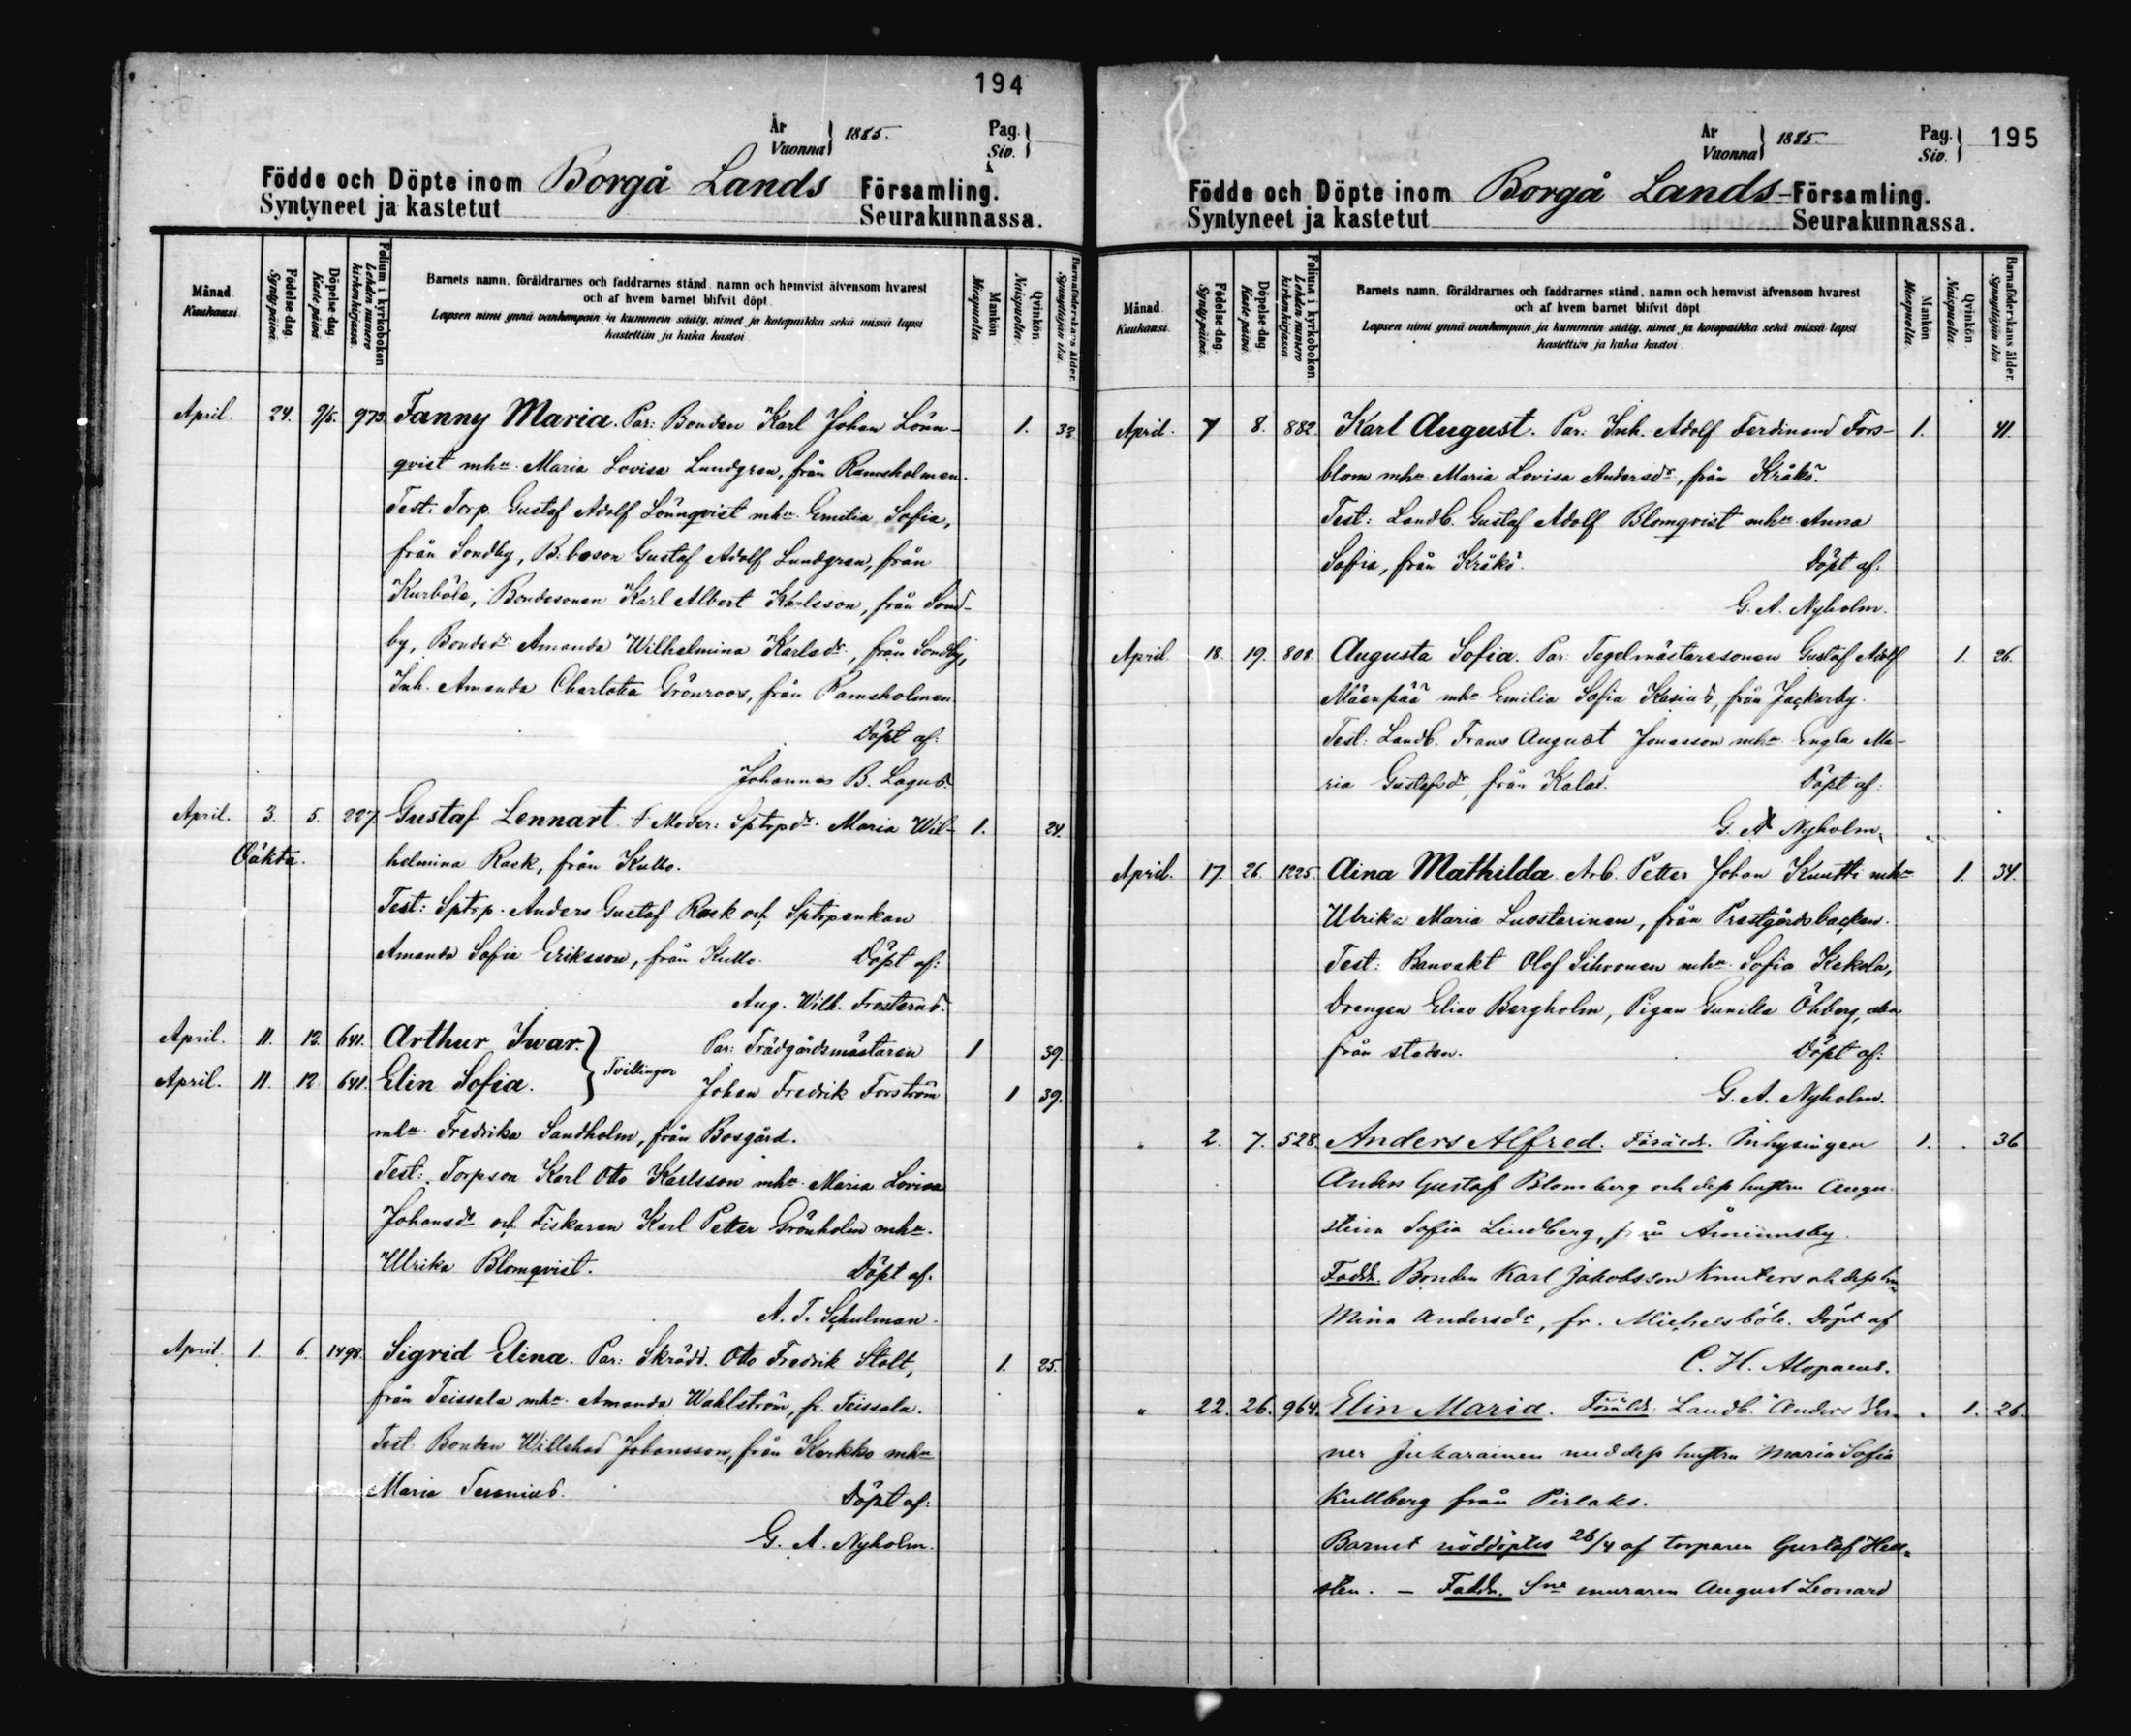 194
År
Vuonna } 1885.
Pag.
Siv. }
Födde och Döpte inom Borgå Lands Församling.
Syntyneet ja kastetut Seurakunnassa.
Månad.
Kuukausi.
Födelse dag.
Syntypäivä.
Döpelse dag.
Kaste päivä
Folium i kyrkoboken
Lehden numero
kirkonkirjassa.
Barnets namn, föräldrarnes och faddrarnes stånd, namn och hemvist äfvensom hvarest
och af hvem barnet blifvit döpt.
Lapsen nimi ynnä vanhempain ja kummein sääty, nimet ja kotopaikka sekä missä lapsi
kastettiin ja kuka kastoi
Mankön
Miespuolia.
Qvinkön
Naispuolia.
Barnaföderskans ålder.
Synnyttäjän ikä.
April. 24. 9/5. 973. Fanny Maria. Par: Bonden Karl Johan Lönn- 1. 32.
qvist mhu. Maria Lovisa Lundgren, från Ramsholmen.
Test: Torp. Gustaf Adolf Lönnqvist mhu. Emilia Sofia,
från Sondby, B. boson Gustaf Adolf Lundgren, från
Kurböle, Bondesonen Karl Albert Karlsson, från Sond-
by, Bondedr Amanda Wilhelmina Karlsdr., från Sondby,
Inh. Amanda Charlotta Grönroos, från Ramsholmen.
Döpt af:
Johannes B. Lagus.
April. 3. 5. 227. Gustaf Lennart. † Moder: Sptrpdr. Maria Wil- 1. 24.
Oäkta. helmina Rask, från Kullo.
Test: Sptrp. Anders Gustaf Rask och Sptrpenkan
Amanda Sofia Eriksson, från Kullo. Döpt af:
Aug. Wilh. Frosterus.
April. 11. 12. 641. Arthur Iwar. } Par: Trädgårdsmästaren 1 39.
Tvillingar
April. 11. 12 641. Elin Sofia. Johan Fredrik Forström 1 39.
mhu. Fredrika Sandholm, från Bosgård.
Test: Torpson Karl Otto Karlsson mhu. Maria Lovisa
Johansdr och Fiskaren Karl Petter Grönholm mhu.
Ulrika Blomqvist. Döpt af.
A. T. Schulman.
April. 1. 6. 1498. Sigrid Elina. Par: Skrädd. Otto Fredrik Stolt, 1. 25.
från Teissala mhu. Amanda Wahlström, fr. Teissala.
Test: Bonden Willehad Johansson, från Karkko mhu
Maria Terenius. Döpt af:
G. A. Nyholm.
År
Vuonna } 1885.
Pag.
Siv. } 195
Födde och Döpte inom Borgå Lands-Församling.
Syntyneet ja kastetut Seurakunnassa.
Månad.
Kuukausi.
Födelse dag.
Syntypäivä.
Döpelse dag
Kaste päivä.
Folium i kyrkoboken.
Lehden numero
kirkonkirjassa.
Barnets namn, föräldrarnes och faddrarnes stånd, namn och hemvist äfvensom hvarest
och af hvem barnet blifvit döpt
Lapsen nimi ynnä vanhempain ja kummein sääty, nimet ja kotopaikka sekä missä lapsi
kastettiin ja kuka kastoi
Mankön
Miespuolia.
Qvinkön
Naispuolia.
Barnaföderskans ålder.
Synnyttäjän ikä.
April. 7 8. 882. Karl August. Par: Inh. Adolf Ferdinand Fors- 1. 41.
blom mhu. Maria Lovisa Andersdr., från Kråkö.
Test: Landb. Gustaf Adolf Blomqvist mhu. Anna
Sofia, från Kråkö. Döpt af:
G. A. Nyholm.
April. 18. 19. 808. Augusta Sofia. Par: Tegelmästaresonen Gustaf Adolf 1. 26.
Mäenpää mhu Emilia Sofia Kasius, från Jackarby.
Test: Landb. Frans August Jonasson mhu. Engla Ma-
ria Gustafsdr, från Kalax. Döpt af:
G. A Nyholm.
April. 17. 26. 1225. Aina Mathilda. Arb. Petter Johan Knutti mhu 1. 34.
Ulrika Maria Luostarinen, från Prestgårdsbacken.
Test: Banvakt Olof Sihvonen mhu. Sofia Kekola,
Drengen Elias Bergholm, Pigan Gunilla Öhberg, alla
från staden. Döpt af:
G. A. Nyholm.
" 2. 7. 528. Anders Alfred. Föräldr. Inhysingen 1. 36
Anders Gustaf Blomberg och deß hustru Augu-
stina Sofia Lindberg, från
Faddr. Bonden Karl Jakobsson Knuters och deß hu
Mina Andersdr, fr. Michelsböle. Döpt af
C. H. Alopaeus.
" 22. 26. 964. Elin Maria. Föräldr. Landb. Anders Ver- 1. 26.
ner Jukarainen med deß hustru Maria Sofia
Kullberg från Pirlaks.
Barnet nöddöptes 26/4 af torparen Gustaf Hell-
sten. — Faddr. Sne muraren August Leonard